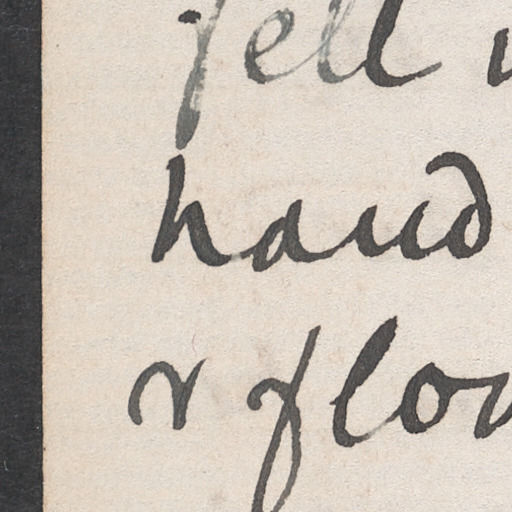 fell
hand
& flo